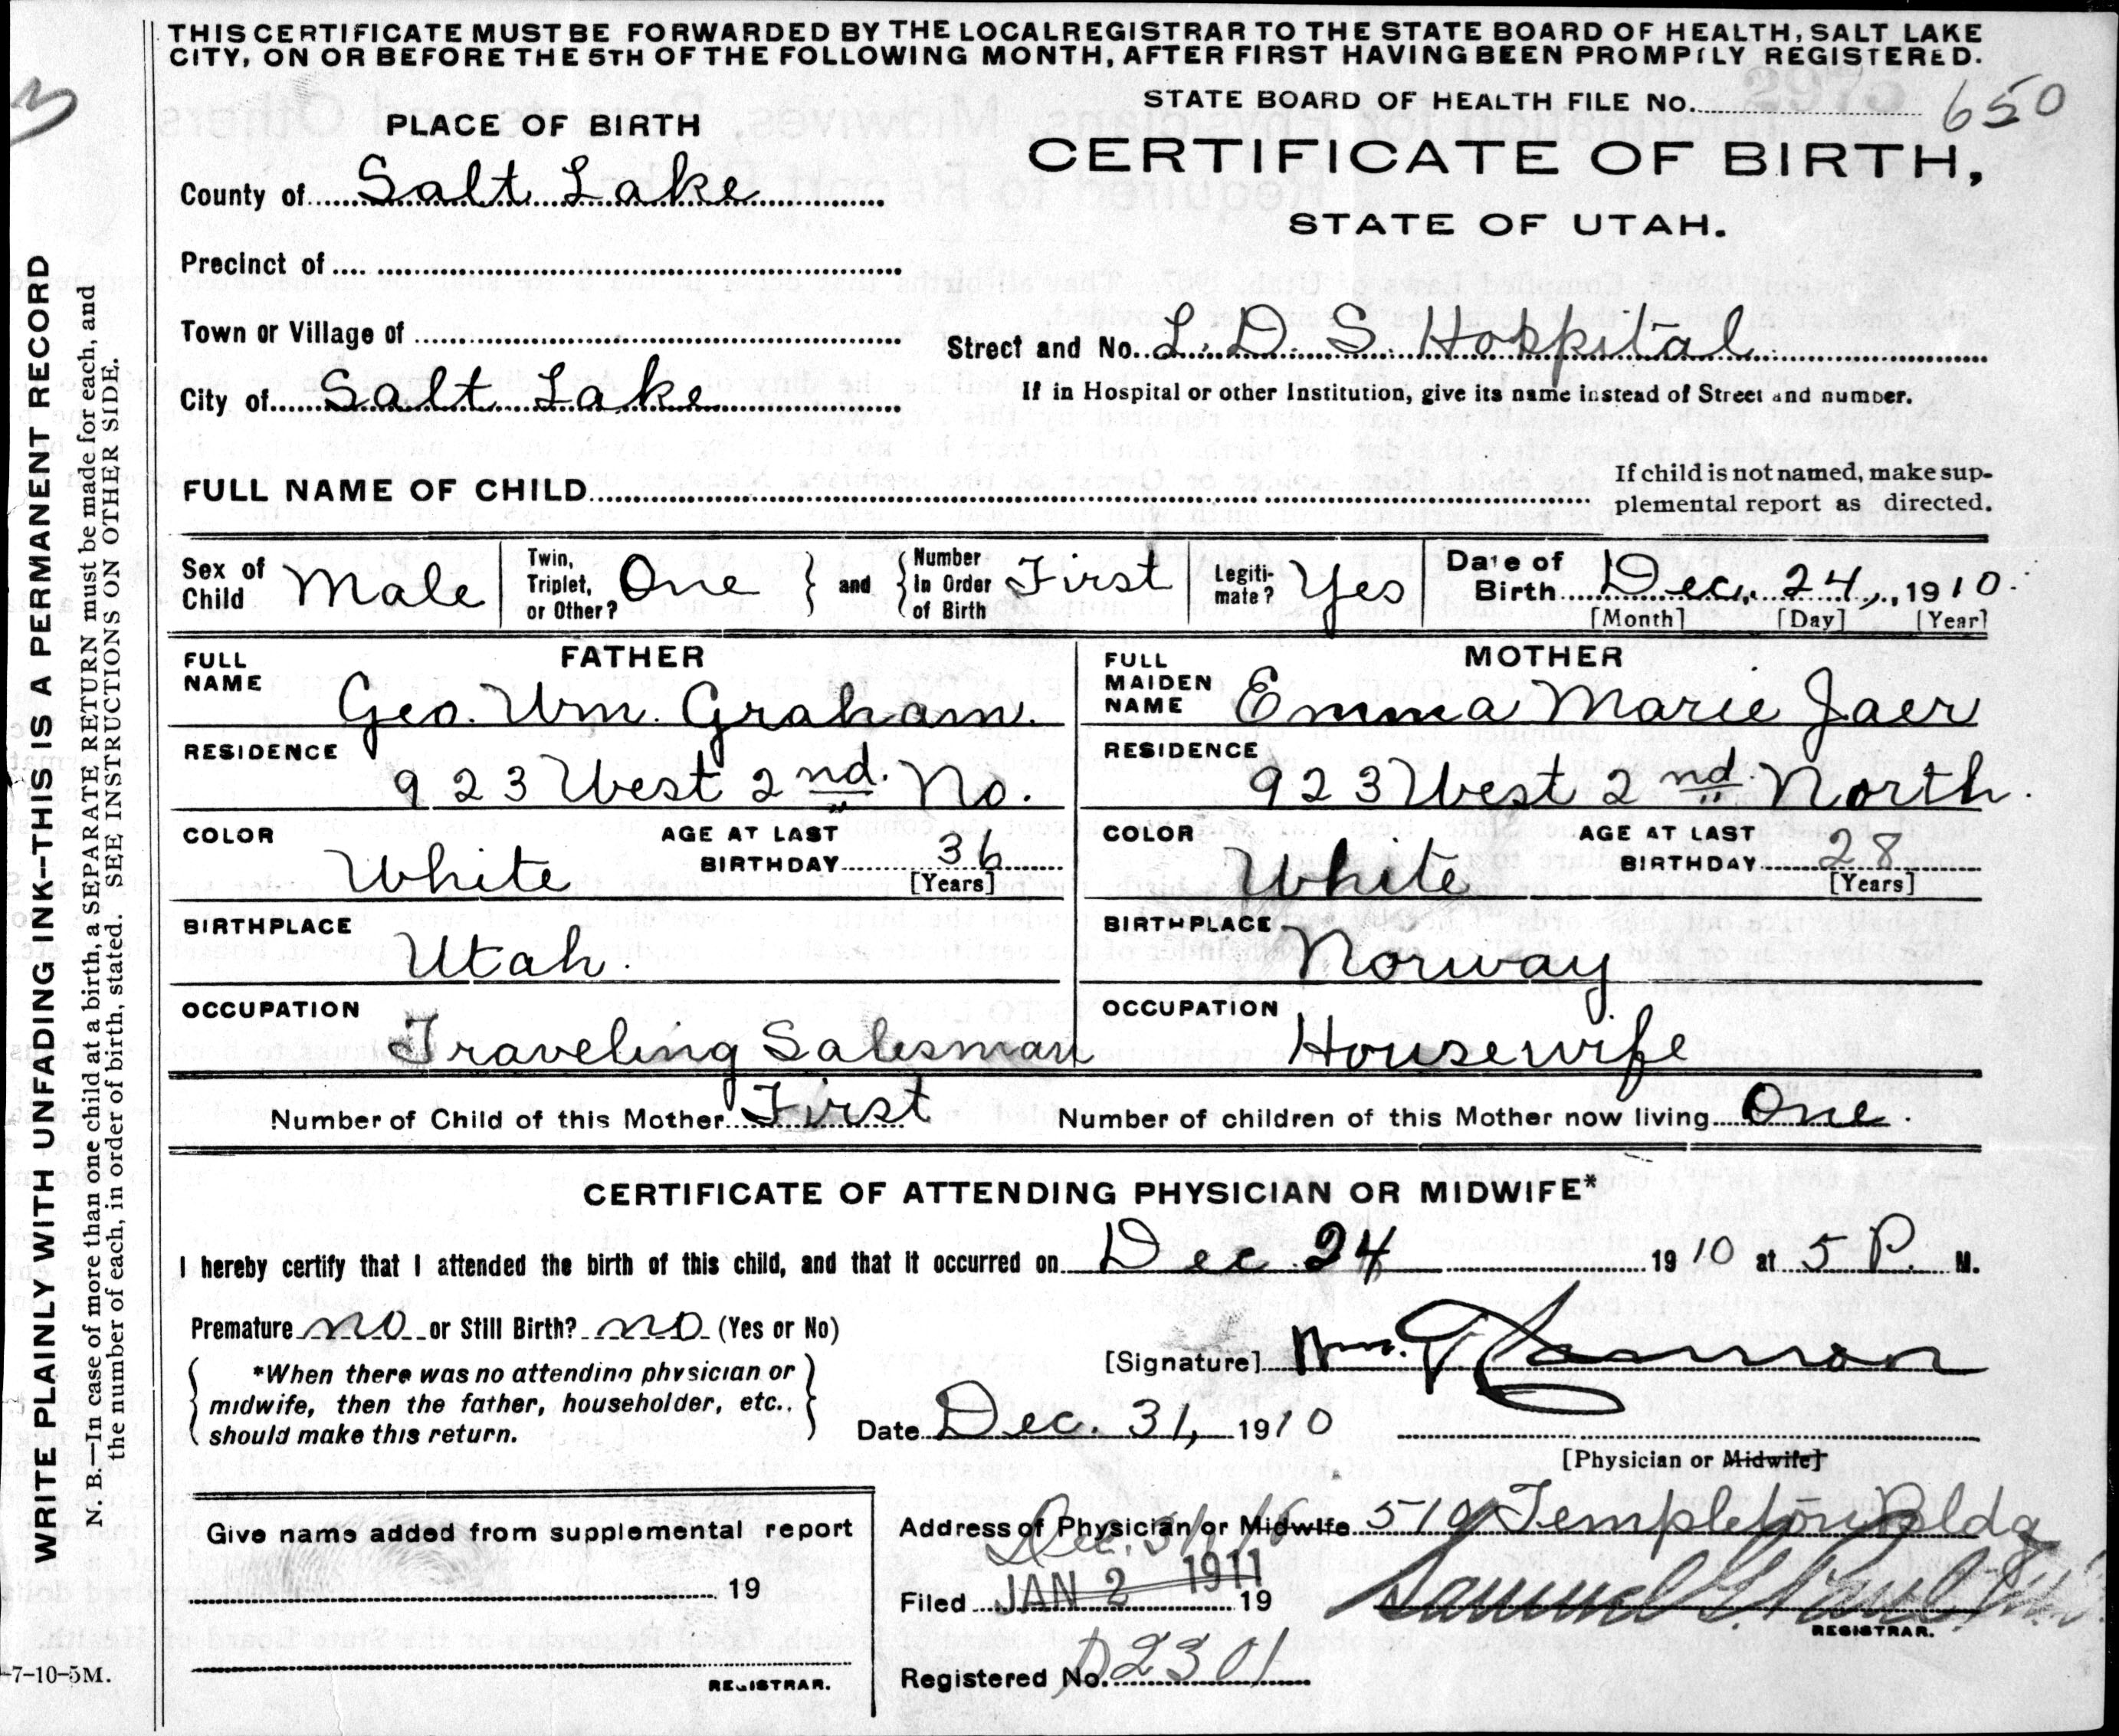 THIS CERTIFICATE MUST BE FORWARDED BY THE LOCAL REGISTRAR TO THE STATE BOARD OF HEALTH, SALT LAKE
CITY, ON OR BEFORE THE 5TH OF THE FOLLOWING MONTH, AFTER FIRST HAVING BEEN PROMPTLY REGISTERED.
STATE BOARD OF HEALTH FILE No. 650
3
PLACE OF BIRTH
CERTIFICATE OF BIRTH,
STATE OF UTAH.
County of Salt Lake
Precinct of
Town or Village of
Street and No. L. D. S. Hospital
City of Salt Lake
If in Hospital or other Institution, give its name instead of Street and number.
FULL NAME OF CHILD
If child is not named, make sup-
plemental report as directed.
Sex of Child Male
Twin, Triplet, or Other? One
and
Number in Order of Birth First
Legiti-mate? Yes
Date of Birth Dec. 24, 1910.
[Month] [Day] [Year]
FATHER
FULL NAME Geo. Wm. Graham.
RESIDENCE 923 West 2nd. No.
COLOR White
AGE AT LAST BIRTHDAY 36 [Years]
BIRTHPLACE Utah.
OCCUPATION Traveling Salesman
MOTHER
FULL MAIDEN NAME Emma Marie Jaer
RESIDENCE 923 West 2nd. North.
COLOR White
AGE AT LAST BIRTHDAY 28 [Years]
BIRTHPLACE Norway
OCCUPATION Housewife
Number of Child of this Mother First
Number of children of this Mother now living One.
CERTIFICATE OF ATTENDING PHYSICIAN OR MIDWIFE*
I hereby certify that I attended the birth of this child, and that it occurred on Dec 24 1910 at 5 P. M.
Premature no or Still Birth? no (Yes or No)
*When there was no attending physician or
midwife, then the father, householder, etc.,
should make this return.
[Signature] Wm.
Date Dec. 31, 1910
[Physician or Midwife]
Give name added from supplemental report
19
REGISTRAR.
Address of Physician or Midwife 510 Templeton Bldg
Dec. 31/10
Filed JAN 2 1911 19
Samuel G. Paul
REGISTRAR.
Registered No. D2301
WRITE PLAINLY WITH UNFADING INK--THIS IS A PERMANENT RECORD
N. B.—In case of more than one child at a birth, a SEPARATE RETURN must be made for each, and
the number of each, in order of birth, stated. SEE INSTRUCTIONS ON OTHER SIDE.
-7-10-5M.